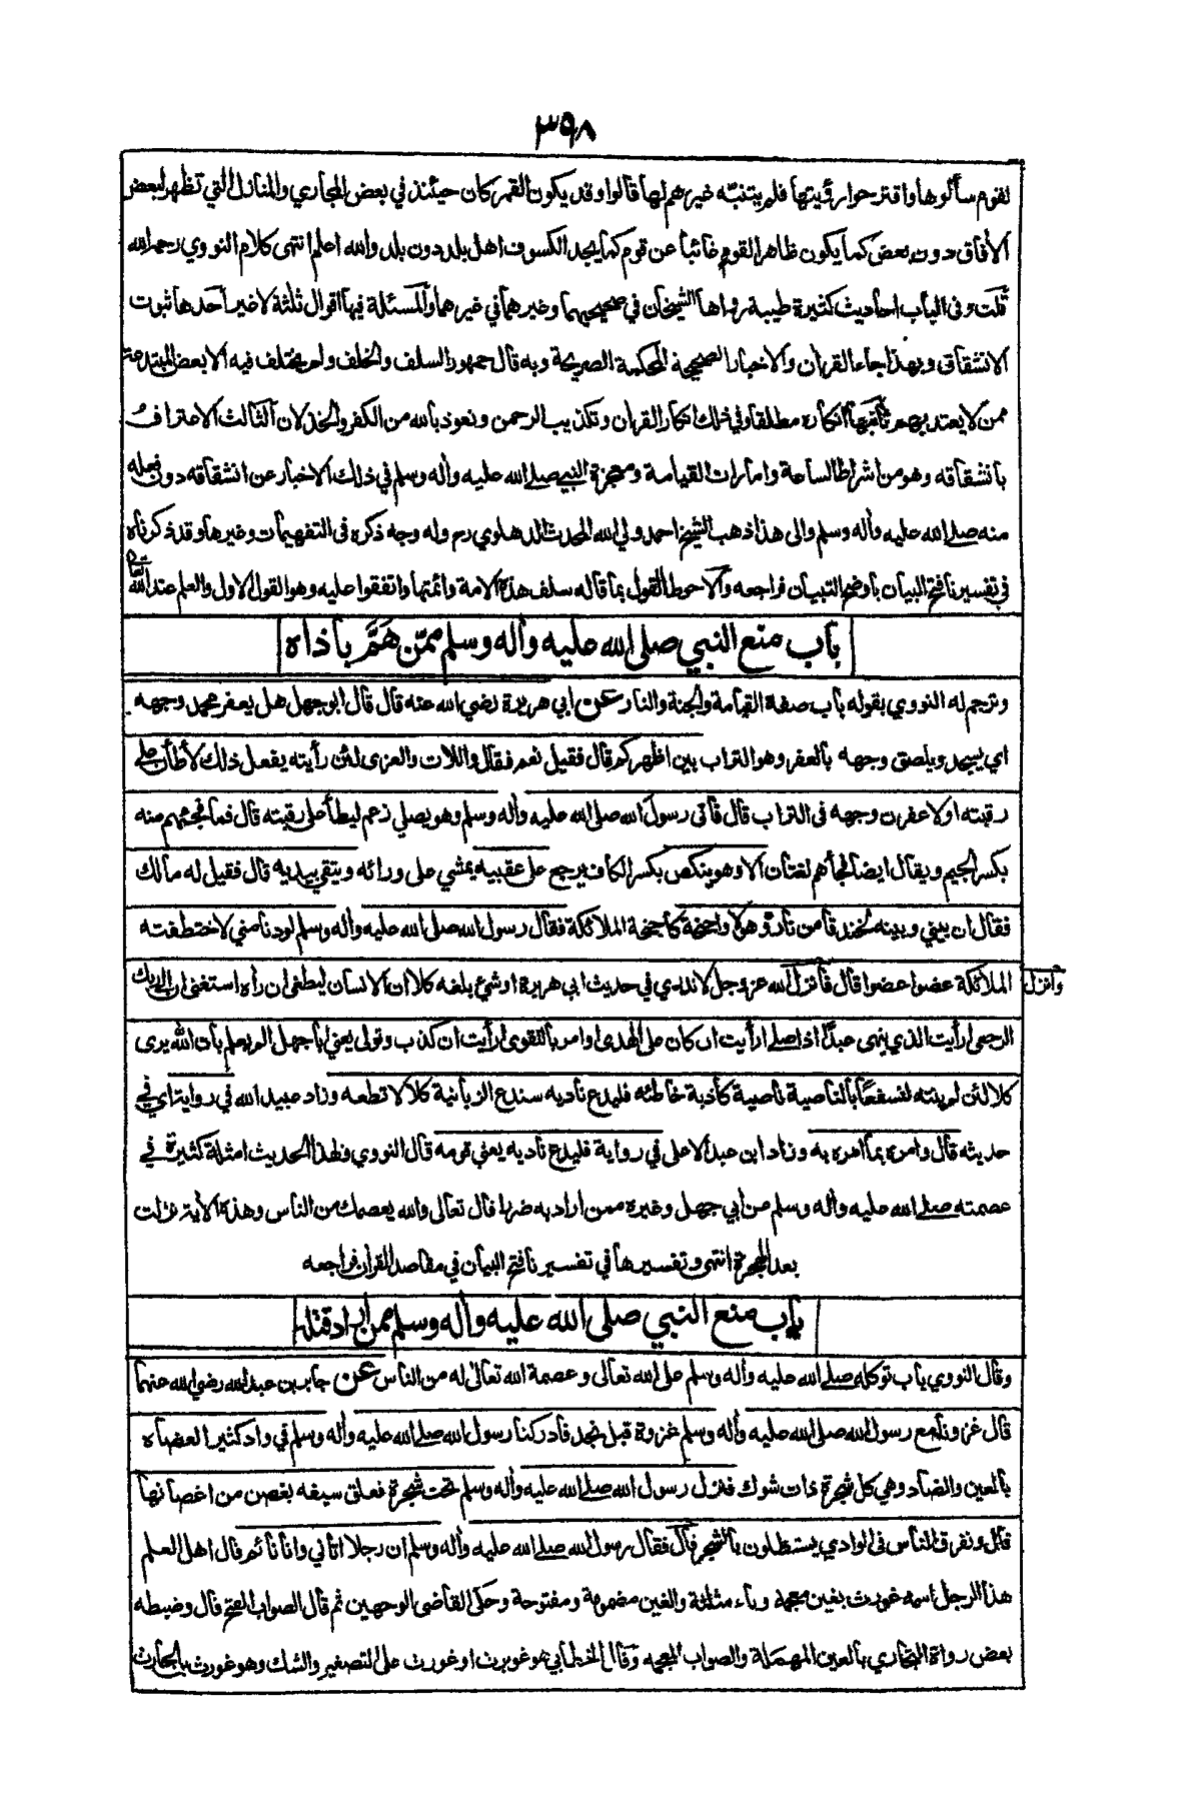 ٣٩٨
لقوم سألوها واقترحوا رؤيتها فلم يتنبّه غيرهم لها قالوا وقد يكون القمر كان حينئذ في بعض المجاري والمنازل التي تظهر لبعض
الأفاق دون بعض كما يكون ظاهرا لقوم غائبا عن قوم كما يجد الكسوف اهل بلد دون بلد والله اعلم انتهى كلام النووي رحمه الله
قلت وفى الباب احاديث كثيرة طيبة رواها الشيخان في صحيحيهما وغيرهما في غيرهما والمسئلة فيها اقوال ثلثة لاغير احدها ثبوت
الانشقاق وبهذا جاء القران والاخبار الصحيحة المحكمة الصريحة وبه قال جمهور السلف والخلف ولم يختلف فيه الا بعض المبتدعة
ممن لا يعتد بهم ثانيها انكاره مطلقا وفي ذلك انكار القران وتكذيب الرحمن ونعوذ بالله من الكفر والخذلان الثالث الاعتراف
بانشقاقه وهو من اشراط الساعة وامارات القيامة ومعجزة النبي صلے الله عليه واٰله وسلم في ذلك الاخبار عن انشقاقه دون فعله
منه صلے الله عليه واٰله وسلم والى هذا ذهب الشيخ احمد ولي الله المحدث الدهلوي رح وله وجه ذكره فى التفهيمات وغيرها وقد ذكرناه
في تفسيرنا فتح البيان باوضح التبيان فراجعه والاحوط القول بما قاله سلف هذه الامة وائمتها واتفقوا عليه وهو القول الاول والعلم عند الله تعالى
باب منع النبي صلى الله عليه واٰله وسلم ممّن هَمَّ باذاه
وترجم له النووي بقوله باب صفة القيامة والجنة والنار عن ابي هريرة رضي الله عنه قال قال ابوجهل هل يعفر محمد وجهه
اي يسجد ويلصق وجهه بالعفر وهو التراب بين اظهركم قال فقيل نعم فقال واللات والعزى لئن رأيته يفعل ذلك لأطأن على
رقبته اولاعفرن وجهه فى التراب قال فأتى رسول الله صلى الله عليه واٰله وسلم وهو يصلي زعم ليطأ على رقبته قال فما فجئهم منه
بكسر الجيم ويقال ايضا فجأهم لغتان الا وهو ينكص بكسر الكاف يرجع على عقبيه يمشي على ورائه ويتقي بيديه قال فقيل له مالك
فقال ان بيني وبينه لخندقا من نار وهولا واجنحة كأجنحة الملائكة فقال رسول الله صلى الله عليه واٰله وسلم لو دنا مني لاختطفته
الملائكة عضوا عضوا قال فأنزل الله عز وجل لا ندري في حديث ابي هريرة او شئ بلغه كلا ان الانسان ليطغى ان رأه استغنى ان الى ربك
وانزل
الرجعى ارأيت الذي ينهى عبدًا اذا صلے ارأيت ان كان على الهدى او امر بالتقوى ارأيت ان كذب وتولى يعني ابا جهل الم يعلم بان الله يرى
كلا لئن لم ينته لنسفعًا بالناصية ناصية كاذبة خاطئة فليدع ناديه سندع الزبانية كلا لا تطعه وزاد عبيد الله في رواية اي في
حديثه قال وامره بما امره به وزاد ابن عبد الاعلى في رواية فليدع ناديه يعني قومه قال النووي ولهذا الحديث امثلة كثيرة في
عصمته صلے الله عليه واٰله وسلم من ابي جهل وغيره ممن اراد به ضررا قال تعالى والله يعصمك من الناس وهذه الاٰية نزلت
بعد الهجرة انتهى وتفسيرها في تفسيرنا فتح البيان في مقاصد القرأن فراجعه
باب منع النبي صلى الله عليه واٰله وسلم ممن اراد قتله
وقال النووي باب توكله صلے الله عليه واٰله وسلم على الله تعالى وعصمة الله تعالى له من الناس عن جابر بن عبد الله رضي الله عنهما
قال غزونا مع رسول الله صلى الله عليه واٰله وسلم غزوة قبل نجد فادركنا رسول الله صلے الله عليه واٰله وسلم في واد كثير العضاه
بالعين والضاد وهي كل شجرة ذات شوك فنزل رسول الله صلے الله عليه واٰله وسلم تحت شجرة فعلق سيفه بغصن من اغصانها
قال وتفرق الناس فى الوادي يستظلون بالشجر قال فقال رسول الله صلے الله عليه واٰله وسلم ان رجلا اتاني وانا نائم قال اهل العلم
هذا الرجل اسمه غورث بغين معجمة وثاء مثلثة والغين مضمومة ومفتوحة وحكى القاضى الوجهين ثم قال الصواب الفتح قال وضبطه
بعض رواة البخاري بالعين المهملة والصواب المعجمة وقال الخطابي هو غويرث او غورث على التصغير والشك وهو غورث بن الحارث